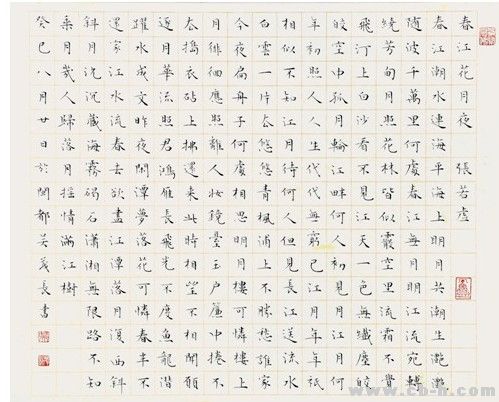 春江花月夜 張若虛
春江潮水連海平海上明月共潮生灩灩
隨波千萬里何處春江無月明江流宛轉
繞芳甸月照花林皆似霰空里流霜不覺
飛汀上白沙看不見江天一色無纖塵皎
皎空中孤月輪江畔何人初見月江月何
年初照人人生代代無窮已江月年年祇
相似不知江月待何人但見長江送流水
白雲一片去悠悠青楓浦上不勝愁誰家
今夜扁舟子何處相思明月樓可憐樓上
月徘徊應照離人妝鏡臺玉戶簾中捲不
去搗衣砧上拂還來此時相望不相聞願
逐月華流照君鴻雁長飛光不度魚龍潛
躍水成文昨夜閑潭夢落花可憐春半不
還家江水流春去欲盡江潭落月復西斜
斜月沉沉藏海霧碣石瀟湘無限路不知
乘月幾人歸落月搖情滿江樹
癸巳八月廿日於閩都吳茂長書
www.cb-h.com